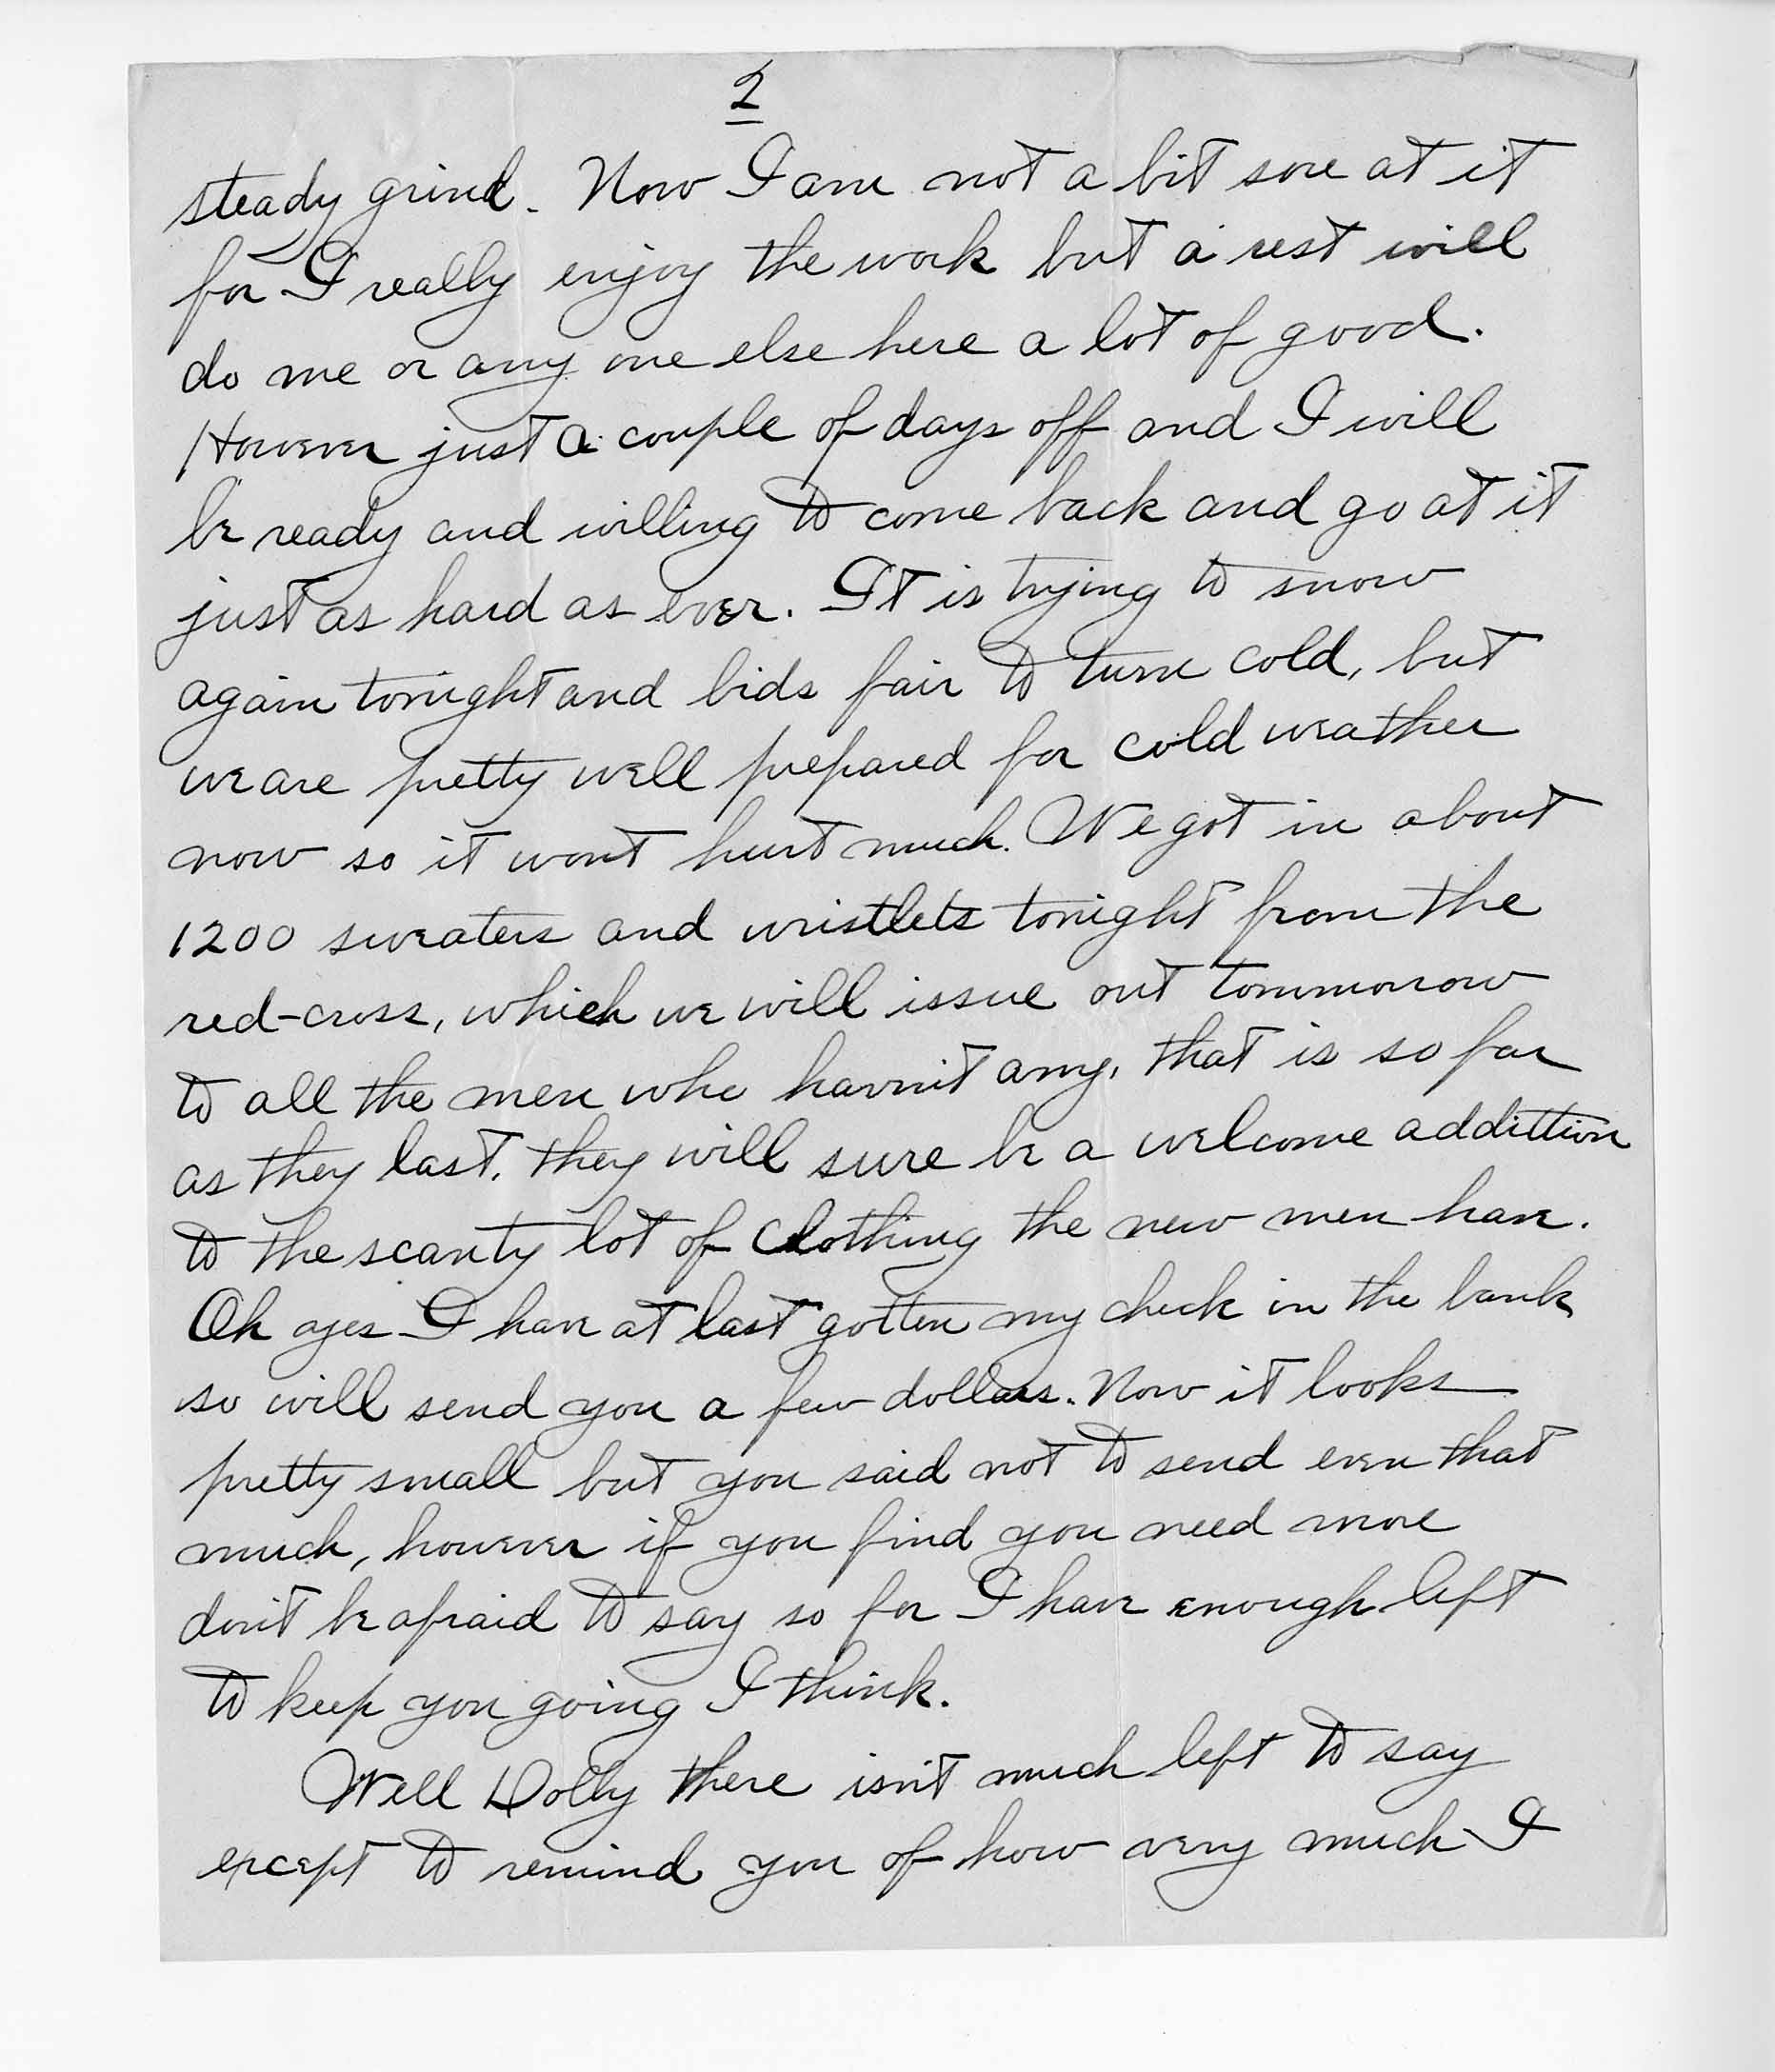 2
steady grind. Now I am not a bit sore at it
for I really enjoy the work but a rest will
do me or any one else here a lot of good.
However just a couple of days off and I will
be ready and willing to come back and go at it
just as hard as ever. It is trying to snow
again tonight and bids fair to turn cold, but
we are pretty well prepared for cold weather
now so it wont hurt much. We got in about
1200 sweaters and wristlets tonight from the
red-cross, which we will issue out tommorrow
to all the men who havn't any, that is so far
as they last. they will sure be a welcome addittion
to the scanty lot of clothing the new men have.
Oh yes I have at last gotten my check in the bank
so will send you a few dollars. Now it looks
pretty small but you said not to send even that
much, however if you find you need more
don't be afraid to say so for I have enough left
to keep you going I think.
Well Dolly there isn't much left to say
except to remind you of how very much I